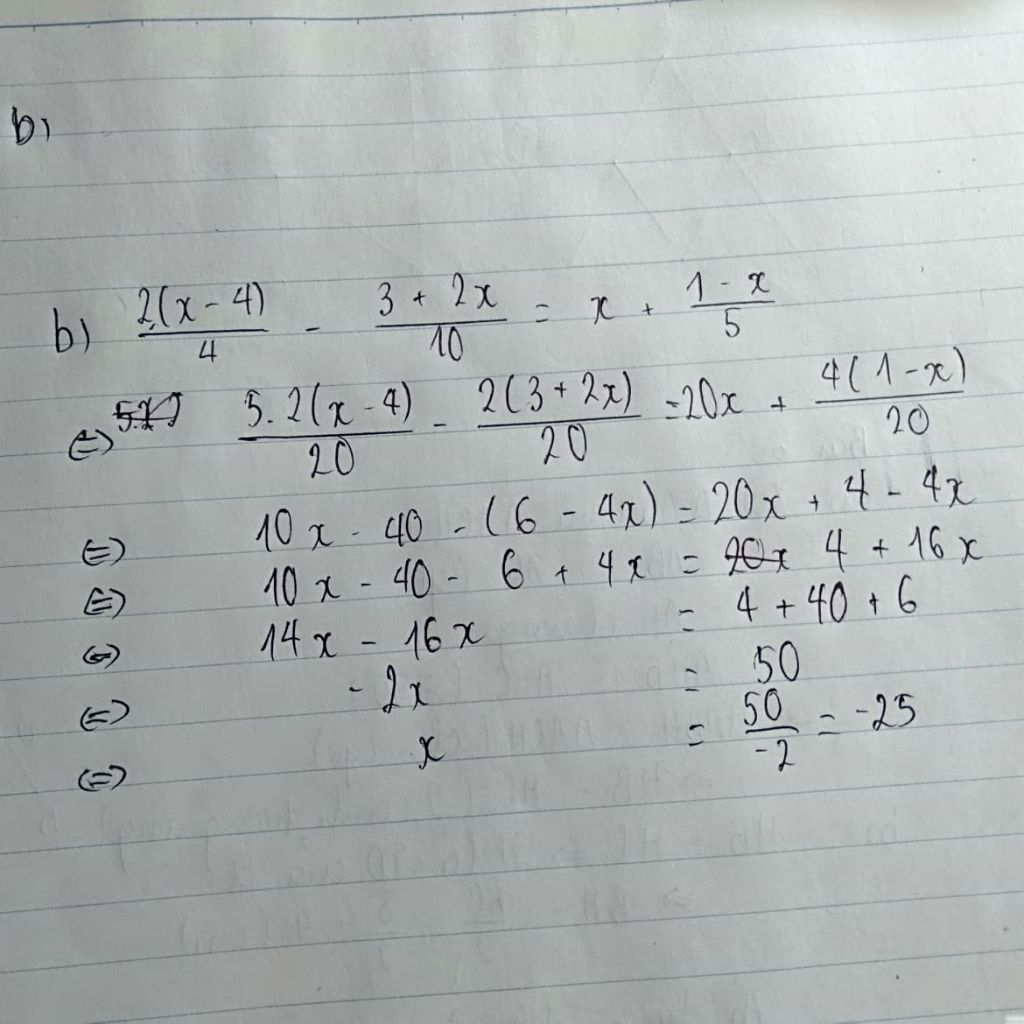 b)
b) 2(x - 4)/4 - 3 + 2x/10 = x + 1 - x/5
<=> 5.2(x - 4)/20 - 2(3 + 2x)/20 = 20x + 4(1 - x)/20
<=> 10x - 40 - (6 - 4x) = 20x + 4 - 4x
<=> 10x - 40 - 6 + 4x = 20x 4 + 16x
<=> 14x - 16x = 4 + 40 + 6
<=> - 2x = 50
<=> x = 50/-2 = -25